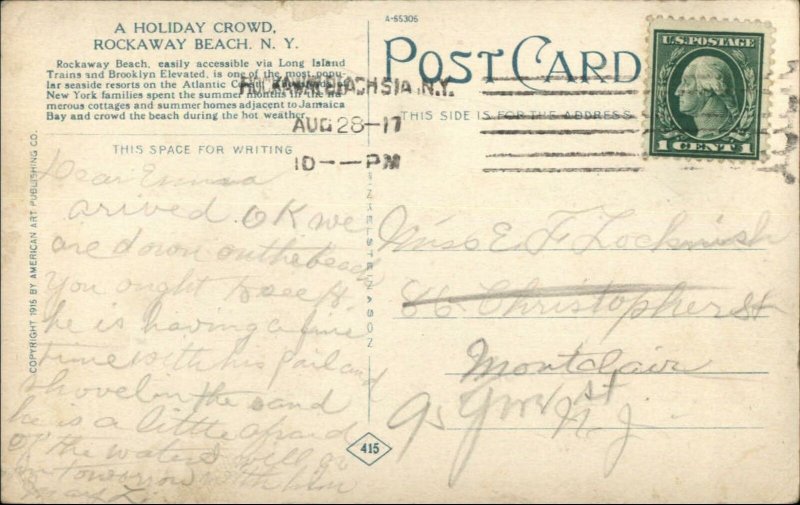 A HOLIDAY CROWD,
ROCKAWAY BEACH. N. Y.
Rockaway Beach, easily accessible via Long Island
Trains and Brooklyn Elevated, is one of the most popu-
lar seaside resorts on the Atlantic
New York families spent the summer months in the nu-
merous cottages and summer homes adjacent to Jamaica
Bay and crowd the beach during the hot weather.
THIS SPACE FOR WRITING
COPYRIGHT 1915 BY AMERICAN ART PUBLISHING CO.
A-65305
POST CARD
THIS SIDE IS FOR THE ADDRESS
N.Y.
AUG 28-17
10--PM
U.S. POSTAGE
1 CENT 1
Dear Emma
arived OK we
are down on the beach
You ought to see
he is having a fine
time with his pail and
shovel on the sand
he is a little afraid
of the water will go
in tomorrow with him
FINKELSTEIN & SON
415
Miss E. F.
66 Christopher St
Montclair
95
N. J.